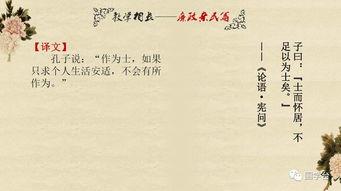 教学相长——廉政亲民篇
【译文】
孔子说：“作为士，如果
只求个人生活安适，不会有所
作为。”
子曰：「士而怀居，不
足以为士矣。」
——《论语·宪问》